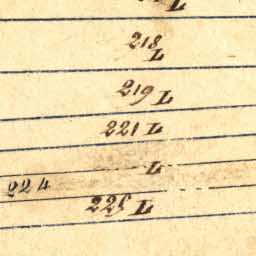 L
218 L
219 L
221 L
L
224
225 L